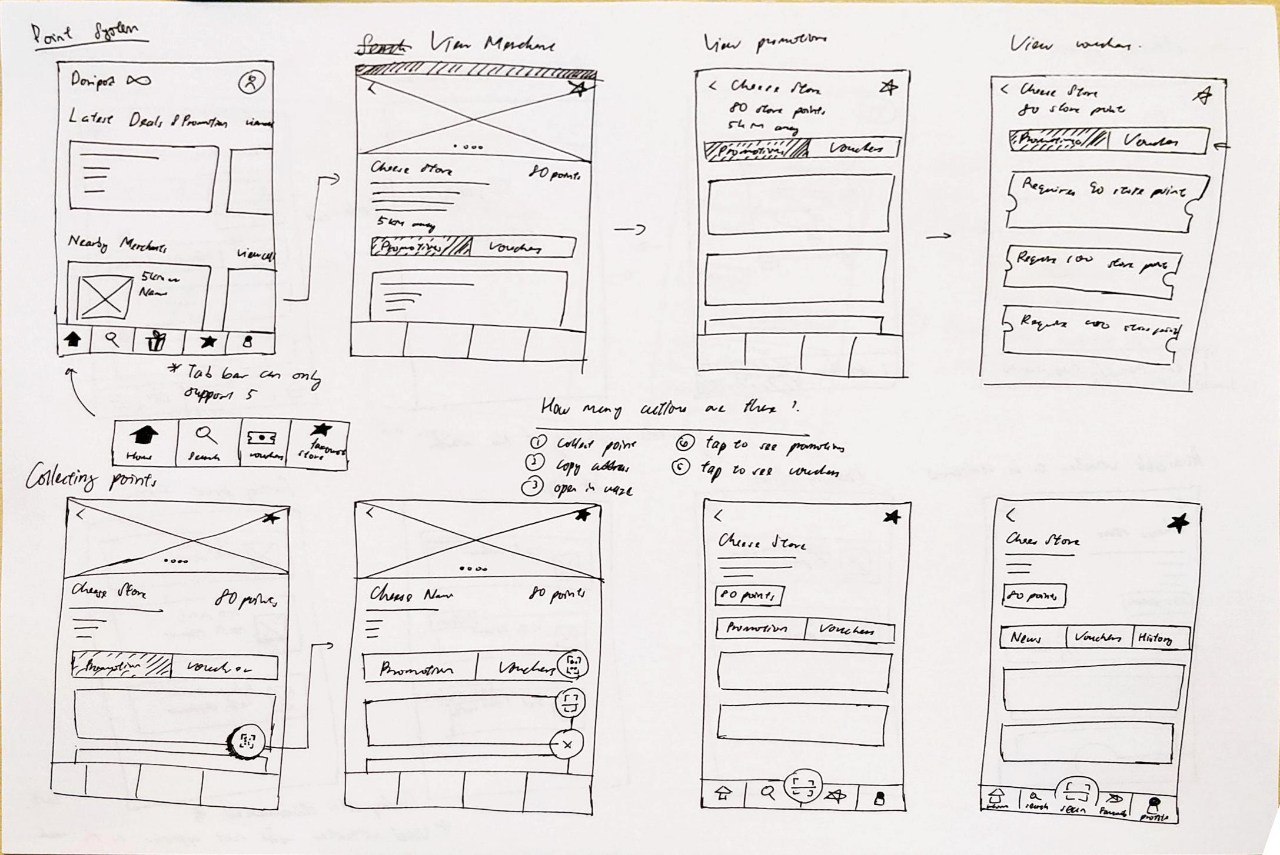 Point System
Search View Merchant
View promotions
View vouchers.
Donipos
Latest Deals & Promotion
Nearby Merchants
view all
5km
Name
* Tab bar can only
support 5
Home
Search
vouchers
favourite
store
Cheese Store
80 points
5km away
Promotions
Vouchers
< Cheese Store
80 store points
5km away
Promotions
Vouchers
< Cheese Store
80 store points
Promotions
Vouchers
Requires 80 store point
Require 100 store point
Require 400 store point
How many actions are there?
① Collect point
② Copy address
③ open in waze
tap to see promotions
⑤ tap to see vouchers
Collecting points
<
Cheese Store
80 points
Promotion
Voucher
<
Cheese Name
80 points
Promotion
Vouchers
<
Cheese Store
80 points
Promotion
Vouchers
<
Chees Store
80 points
News
Vouchers
History
search
scan
profile